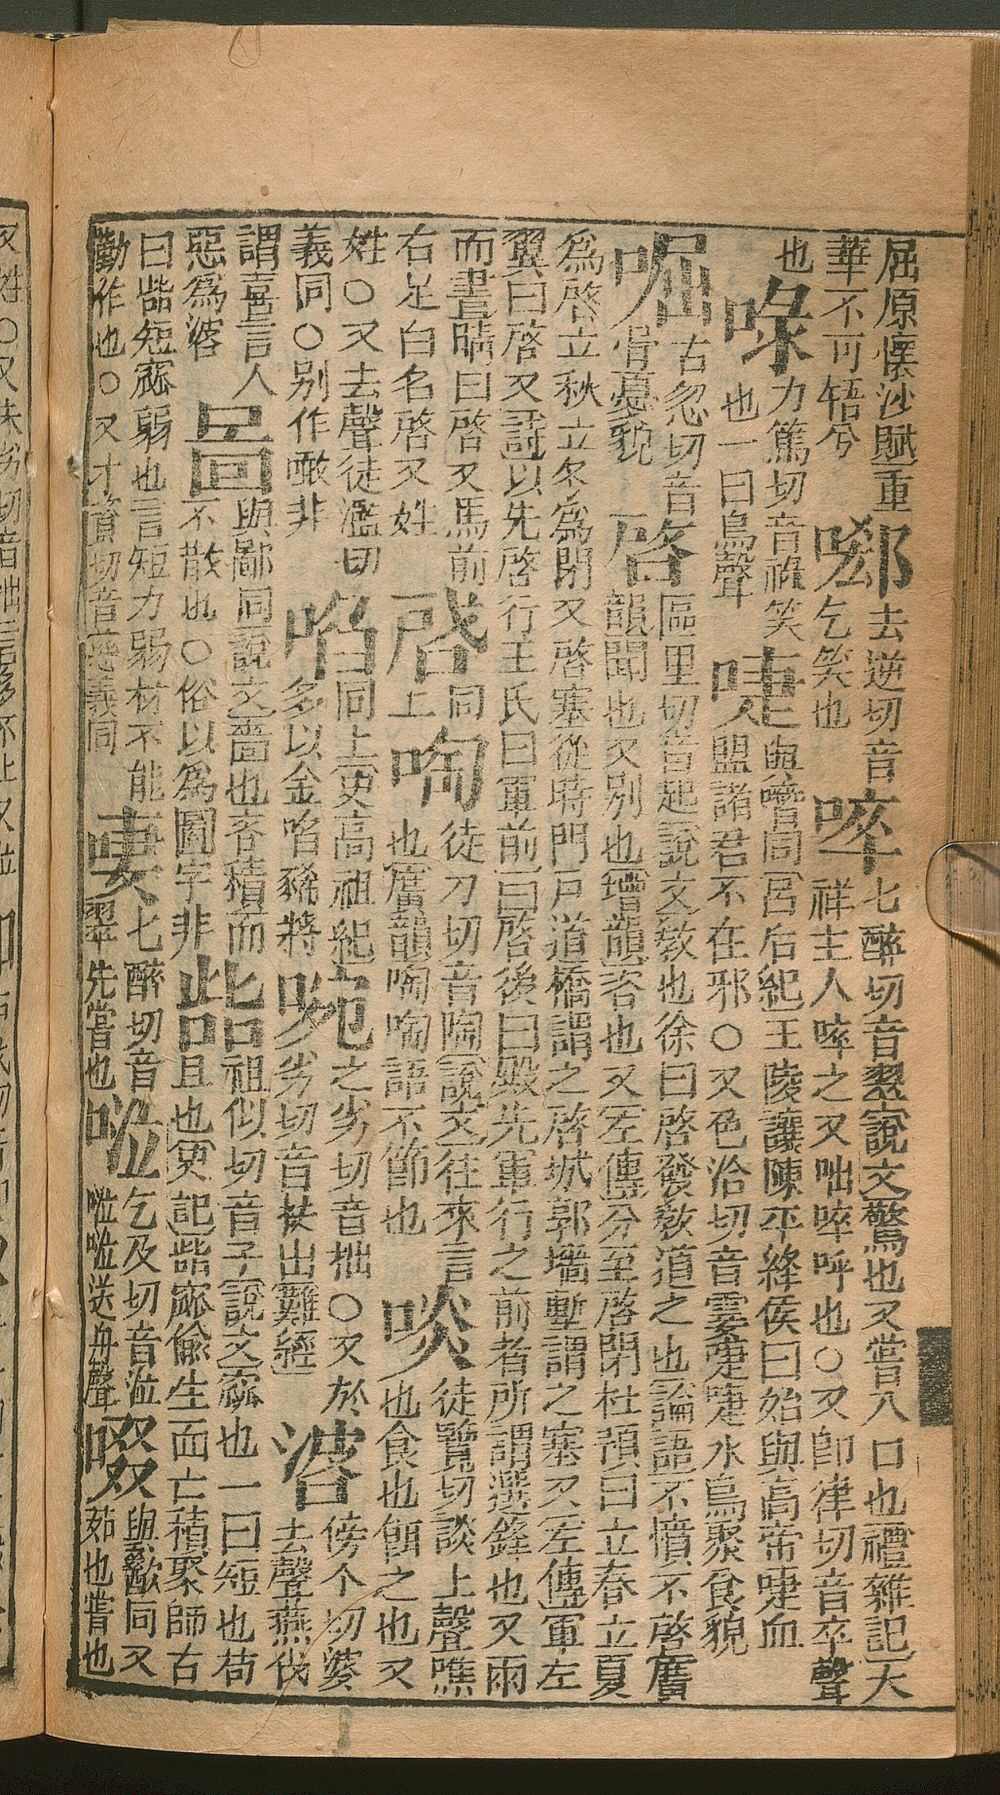 屈原懷沙賦重華不可牾兮
㗉
去逆切音乞笑也
啐
七醉切音翠說文驚也又嘗入口也禮雜記大祥主人啐之又咄啐呼也○又卽律切音卒聲也
啄
力篤切音祿笑也一曰鳥聲
啑
與喢同呂后紀王陵讓陳平絳侯曰始與高帝啑血盟諸君不在邪○又色洽切音霎啑啑水鳥聚食貌
啒
古忽切音骨憂貌
啓
區里切音起說文敎也徐曰啓發敎道之也論語不憤不啓廣韻開也又別也增韻咨也又左傳分至啓閉杜預曰立春立夏為啓立秋立冬為閉又啓塞從時門戶道橋謂之啓城郭墻塹謂之塞又左傳軍左翼曰啓又詩以先啓行王氏曰軍前曰啓後曰殿先軍行之前者所謂選鋒也又雨而晝晴曰啓又馬前右足白名啓又姓
啔
同上
啕
徒刀切音陶說文往來言也廣韻啕啕語不節也
啖
徒覽切談上聲噍也食也餌之也又姓○又去聲徒濫切義同○別作噉非
啗
同上史高祖紀多以金啗豨將
啘
之劣切音拙○又於劣切音抶出難經
㗞
傍个切婆去聲燕代謂喜言人惡為㗞
啚
與鄙同說文嗇也吝積而不散也○俗以為圖字非
啙
祖似切音子說文窳也一曰短也苟且也史記啙窳偸生而亡積聚師古曰啙短窳弱也言短力弱材不能勤作也○又才資切音疵義同
啛
七醉切音翠先嘗也
啦
乞及切音泣啦啦送舟聲
啜
與歠同又茹也嘗也